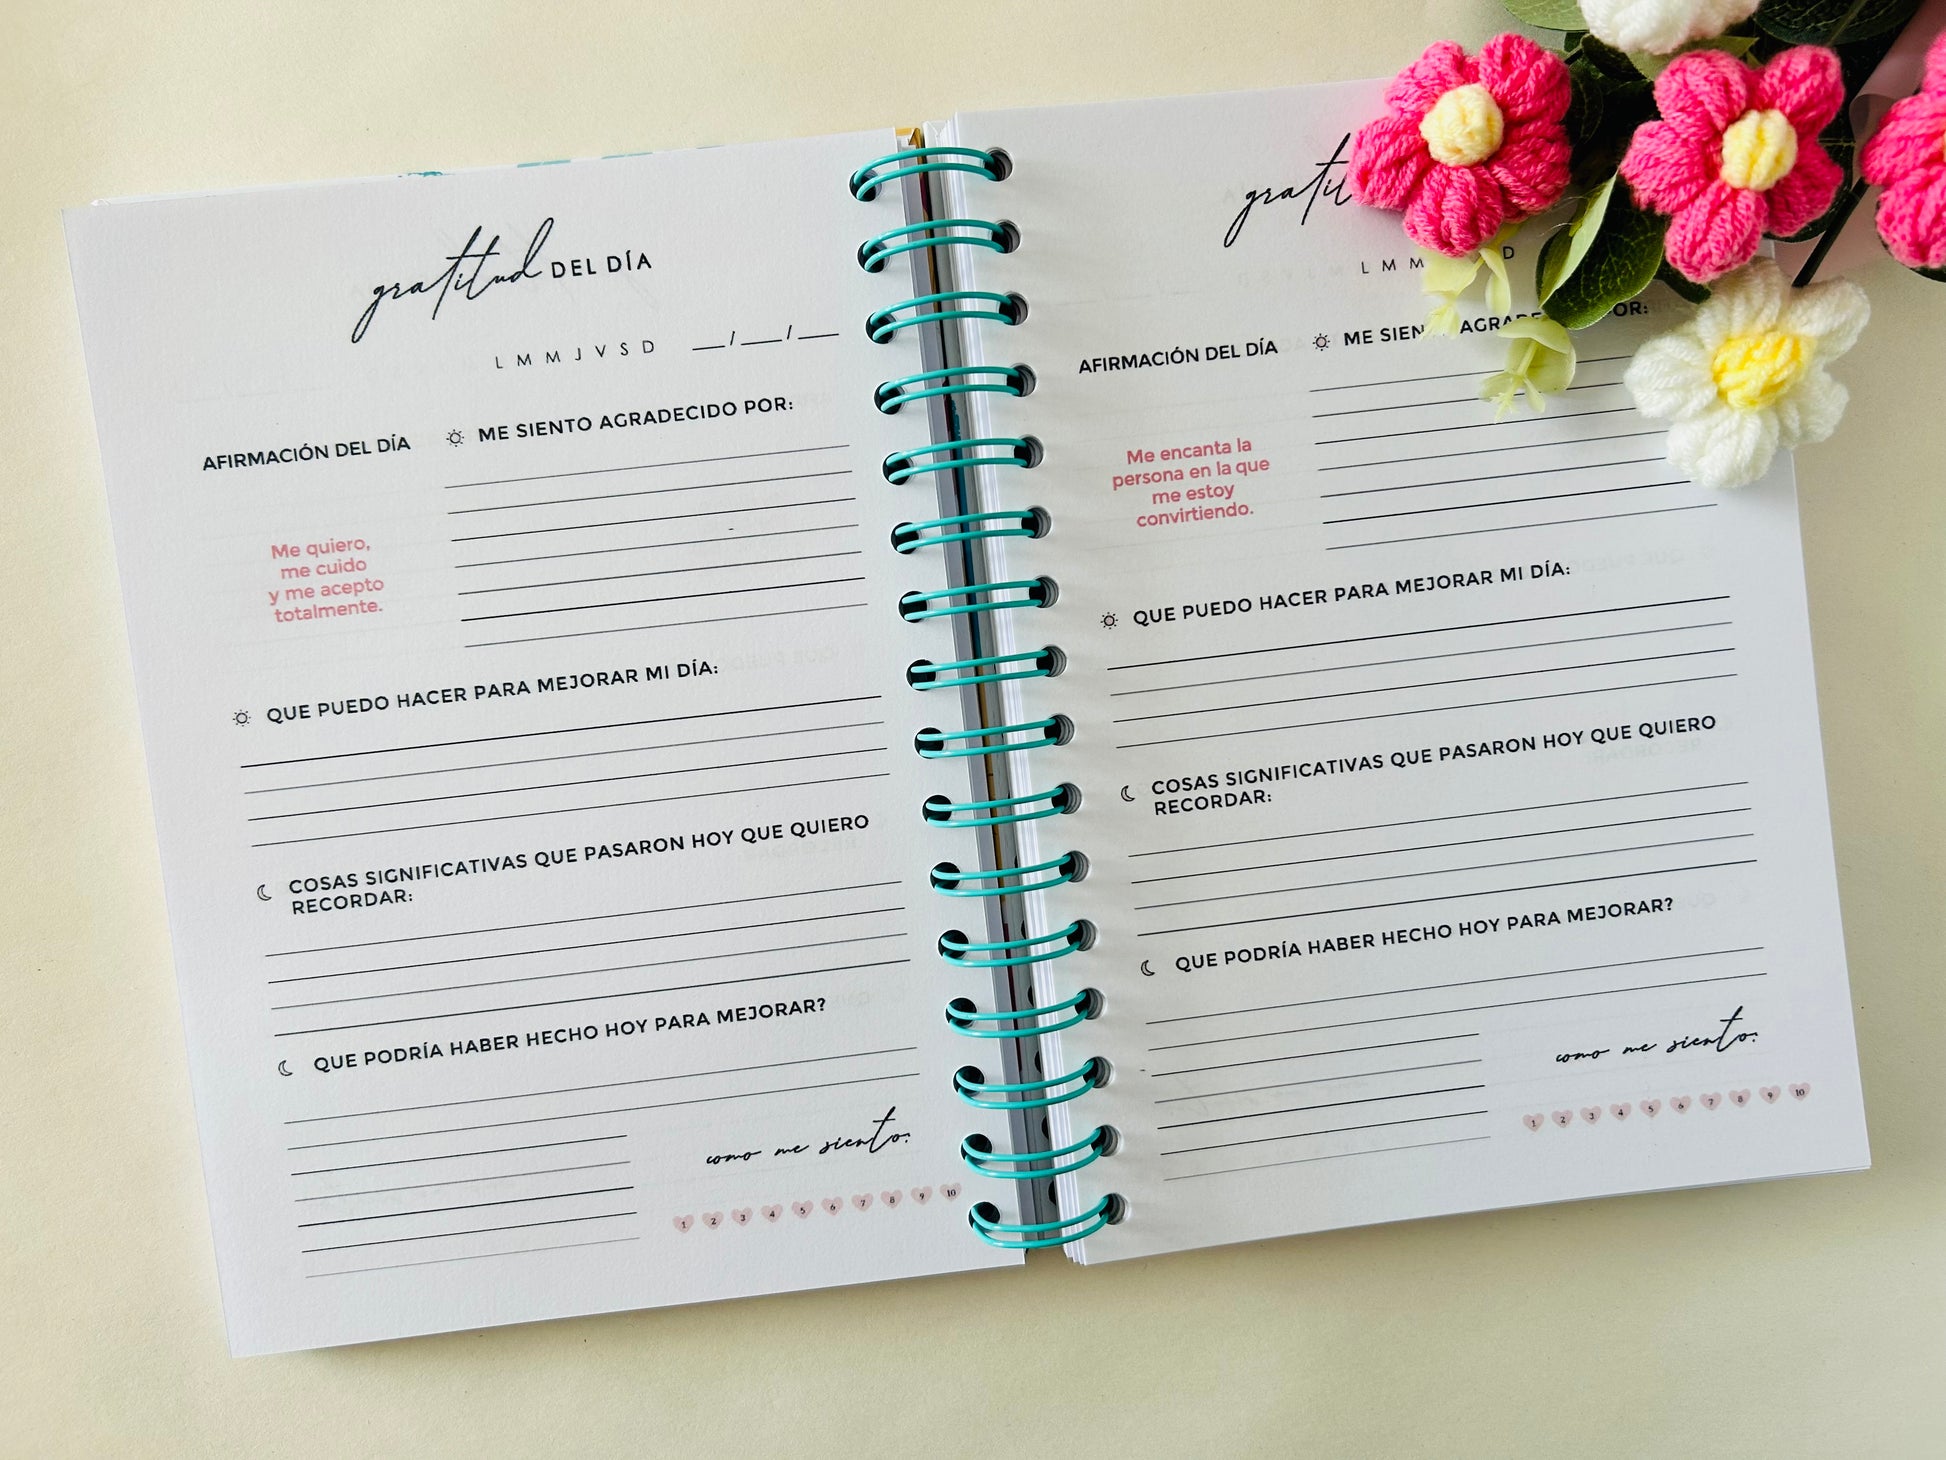 gratitud DEL DÍA
L M M J V S D __/__/__
AFIRMACIÓN DEL DÍA
Me quiero,
me cuido
y me acepto
totalmente.
ME SIENTO AGRADECIDO POR:
QUE PUEDO HACER PARA MEJORAR MI DÍA:
COSAS SIGNIFICATIVAS QUE PASARON HOY QUE QUIERO
RECORDAR:
QUE PODRÍA HABER HECHO HOY PARA MEJORAR?
como me siento:
1 2 3 4 5 6 7 8 9 10
gratit
L M M D
AFIRMACIÓN DEL DÍA
Me encanta la
persona en la que
me estoy
convirtiendo.
ME SIEN AGRADE POR:
QUE PUEDO HACER PARA MEJORAR MI DÍA:
COSAS SIGNIFICATIVAS QUE PASARON HOY QUE QUIERO
RECORDAR:
QUE PODRÍA HABER HECHO HOY PARA MEJORAR?
como me siento:
1 2 3 4 5 6 7 8 9 10